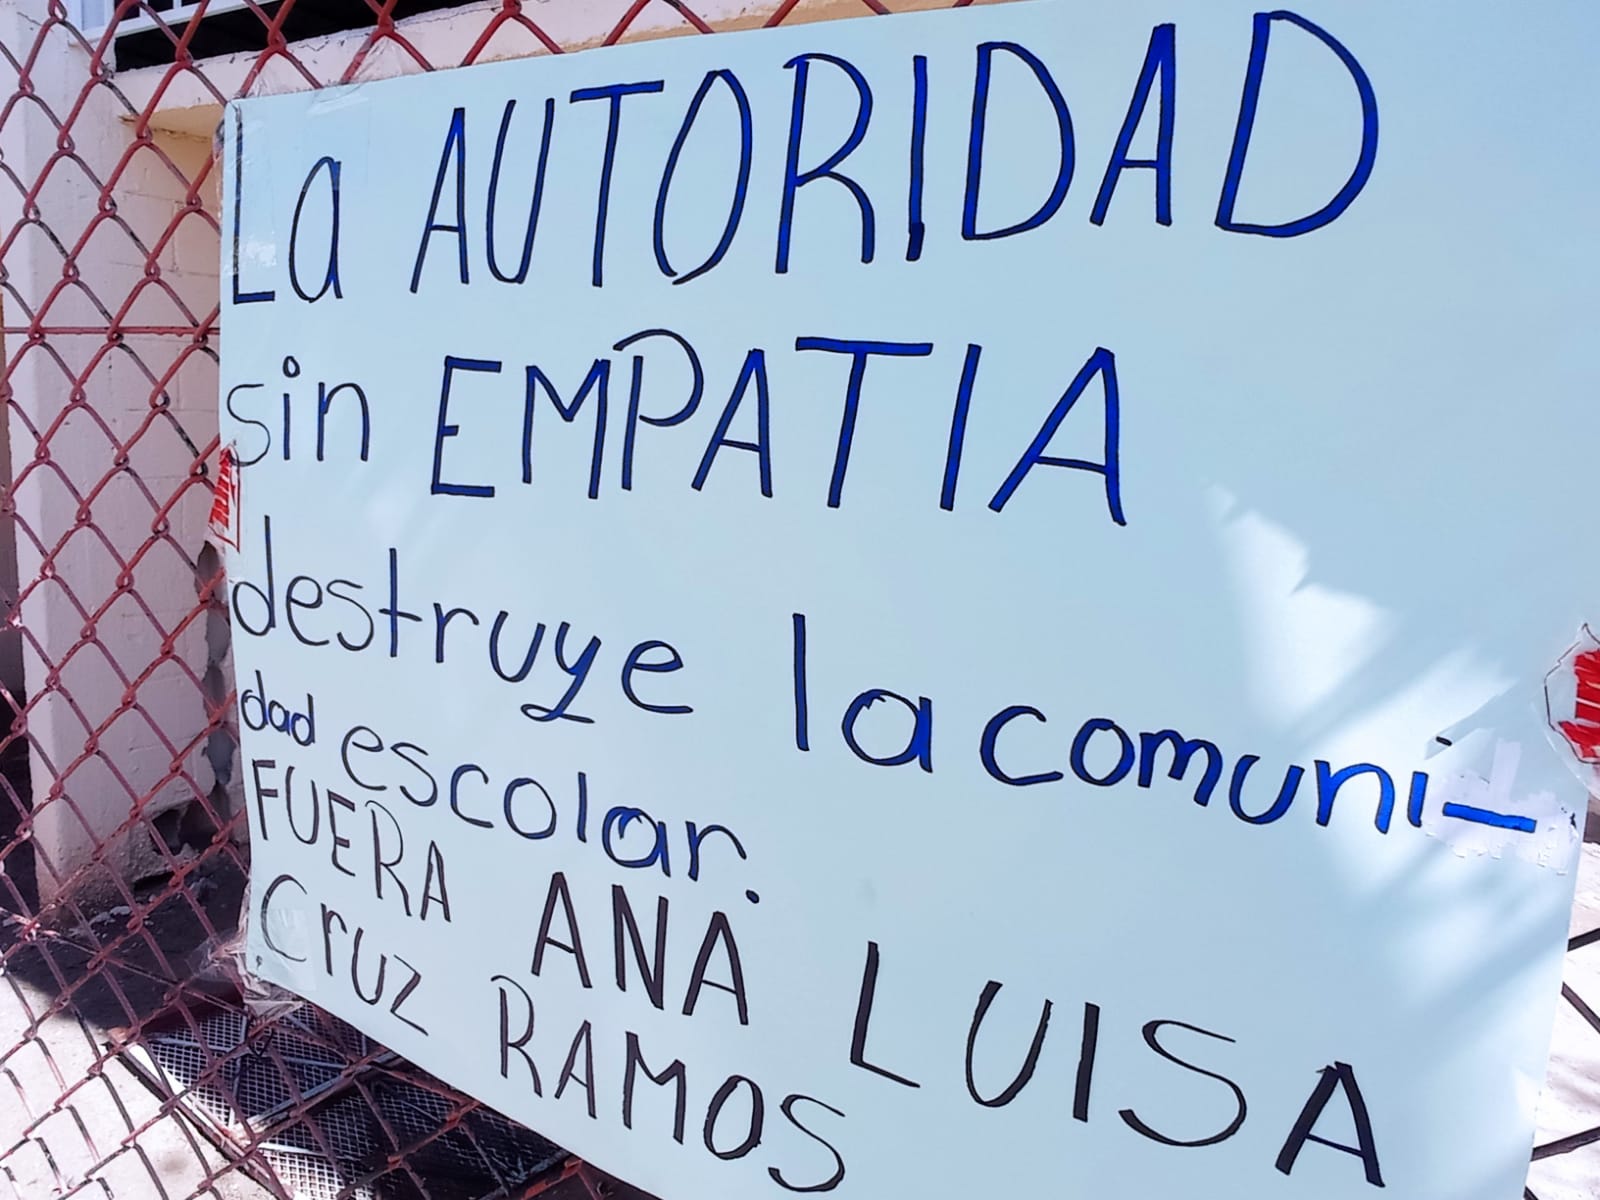 La AUTORIDAD
sin EMPATIA
destruye la comuni-
dad escolar.
FUERA ANA LUISA
Cruz RAMOS